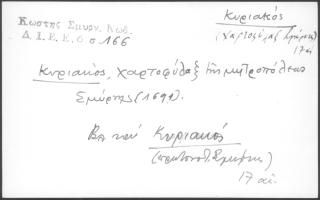 Κωστης Σμυρν. Κωδ.
Δ.Ι.Ε.Ε. 6 σ 166
Κυριακός
(χαρτοφύλαξ Σμύρνης)
17 αἰ
Κυριακός, χαρτοφύλαξ τῆς μητροπόλεως
Σμύρνης (1691).
Βλ καὶ Κυριακός
(πρωτονοτ. Σμύρνης)
17 αἰ.